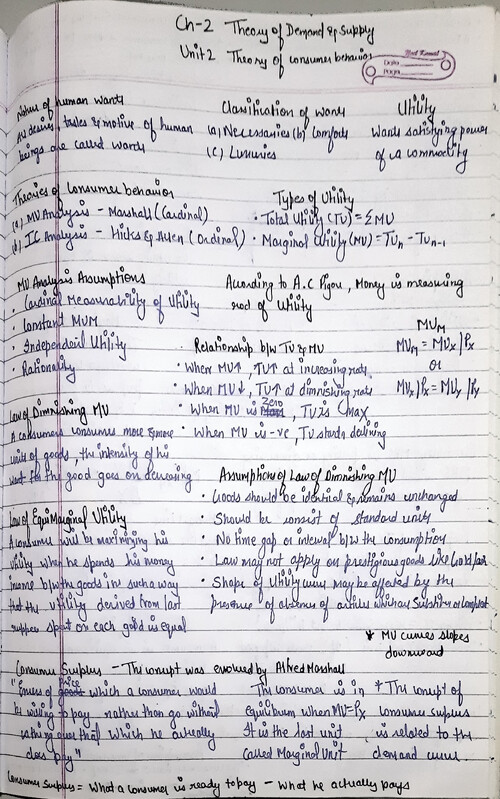 Ch-2 Theory of Demand & Supply
Unit 2 Theory of consumer behavior
Date
Page
Nature of human wants
All desires, tastes & motive of human
beings are called wants
Classification of wants
(a) Necessaries (b) Comforts
(c) Luxuries
Utility
Wants satisfying power
of a commodity
Theories of Consumer behavior
(a) MU Analysis - Marshall (Cardinal)
(b) IC Analysis - Hicks & Allen (Ordinal)
Types of Utility
• Total Utility (TU) = ΣMU
• Marginal Utility (MU) = TUn - TUn-1
MU Analysis Assumptions
• Cardinal Measurability of Utility
• Constant MUM
• Independent Utility
• Rationality
According to A.C Pigou, Money is measuring
rod of Utility
MUM
MUM = MUx/Px
or
MUx/Px = MUy/Py
Relationship b/w TU & MU
• When MU↑, TU↑ at increasing rate
• When MU↓, TU↑ at diminishing rate
• When MU is Zero, TU is max
• When MU is -ve, TU starts declining
Law of Diminishing MU
A consumers consumes more & more
units of goods, the intensity of his
want for the good goes on decreasing
Assumption of Law of Diminishing MU
• Goods should be identical & remains unchanged
• Should be consist of standard units
• No time gap or interval b/w the consumption
• Law may not apply on prestigious goods like Gold, car
• Shape of Utility curve may be affected by the
presence of absence of articles which are Substitutes or Complement
Law of Equi Marginal Utility
A consumer will be maximizing his
utility when he spends his money
income b/w the goods in such a way
that the utility derived from last
ruppee spent on each good is equal
* MU curves slopes
downward
Consumer Surplus - The concept was evolved by Alfred Marshall
"Excess of price which a consumer would
be willing to pay rather than go without
a thing over that which he actually
does pay"
The consumer is in
Equilibrium when MU=Px
It is the last unit
called Marginal Unit
* The concept of
consumer surplus
is related to the
demand curve.
Consumer Surplus = What a consumer is ready to pay - what he actually pays